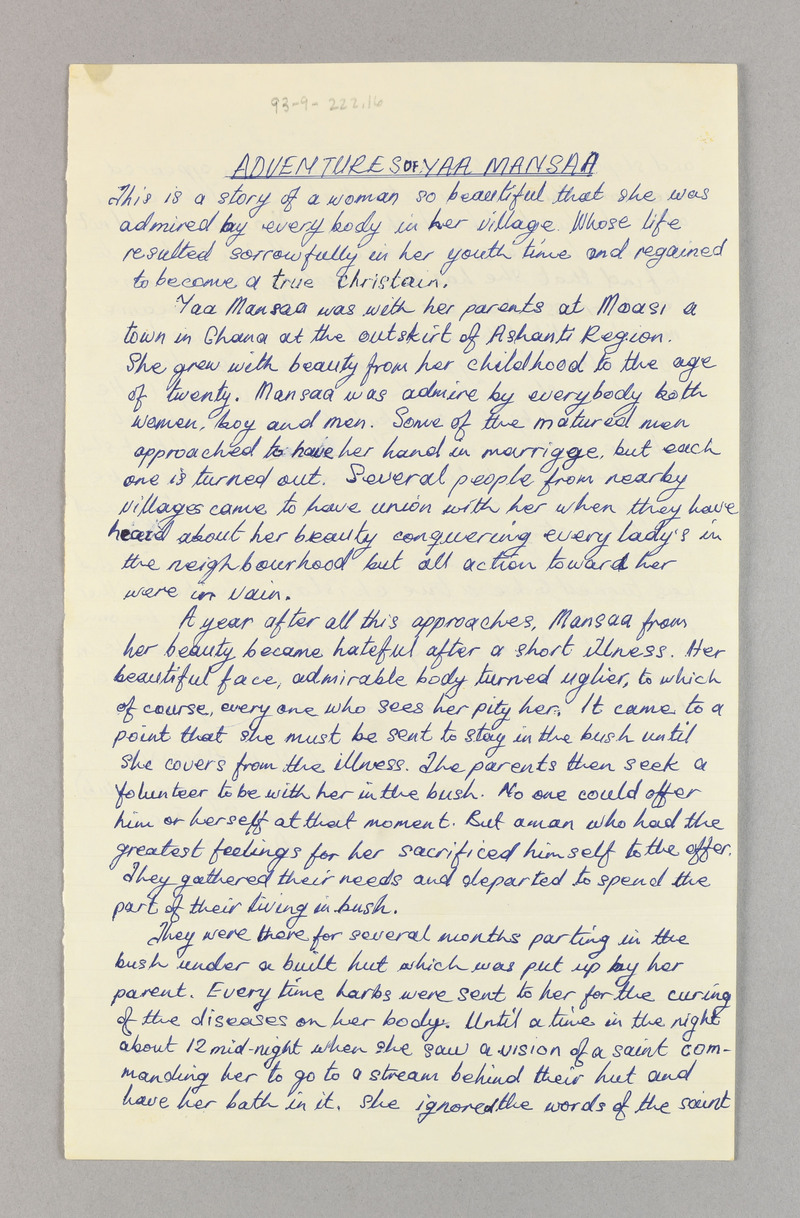 93-9-222.16
ADVENTURES OF YAA MANSAA
This is a story of a woman so beautiful that she was
admired by every body in her village. Whose life
resulted sorrowfully in her youth time and regained
to become a true Christain.
Yaa Mansaa was with her parents at Moasi a
town in Ghana at the outskirt of Ashanti Region.
She grew with beauty from her childhood to the age
of twenty. Mansaa was admire by everybody both
women, boy and men. Some of the matured men
approached to have her hand in marrigge, but each
one is turned out. Several people from nearby
villages came to have union with her when they have
heard about her beauty conquering every lady's in
the neighbourhood but all action toward her
were in vain.
A year after all this approaches, Mansaa from
her beauty became hateful after a short illness. Her
beautiful face, admirable body turned uglier, to which
of course, every one who sees her pity her. It came to a
point that she must be sent to stay in the bush until
she covers from the illness. The parents then seek a
folunteer to be with her in the bush. No one could offer
him or herself at that moment. But a man who had the
greatest feelings for her sacrificed himself to the offer.
They gathered their needs and departed to spend the
part of their living in bush.
They were there for several months parting in the
bush under a built hut which was put up by her
parent. Every time harbs were sent to her for the curing
of the diseases on her body. Until a time in the night
about 12 mid-night when she saw a vision of a saint com-
manding her to go to a stream behind their hut and
have her bath in it. She ignored the words of the saint